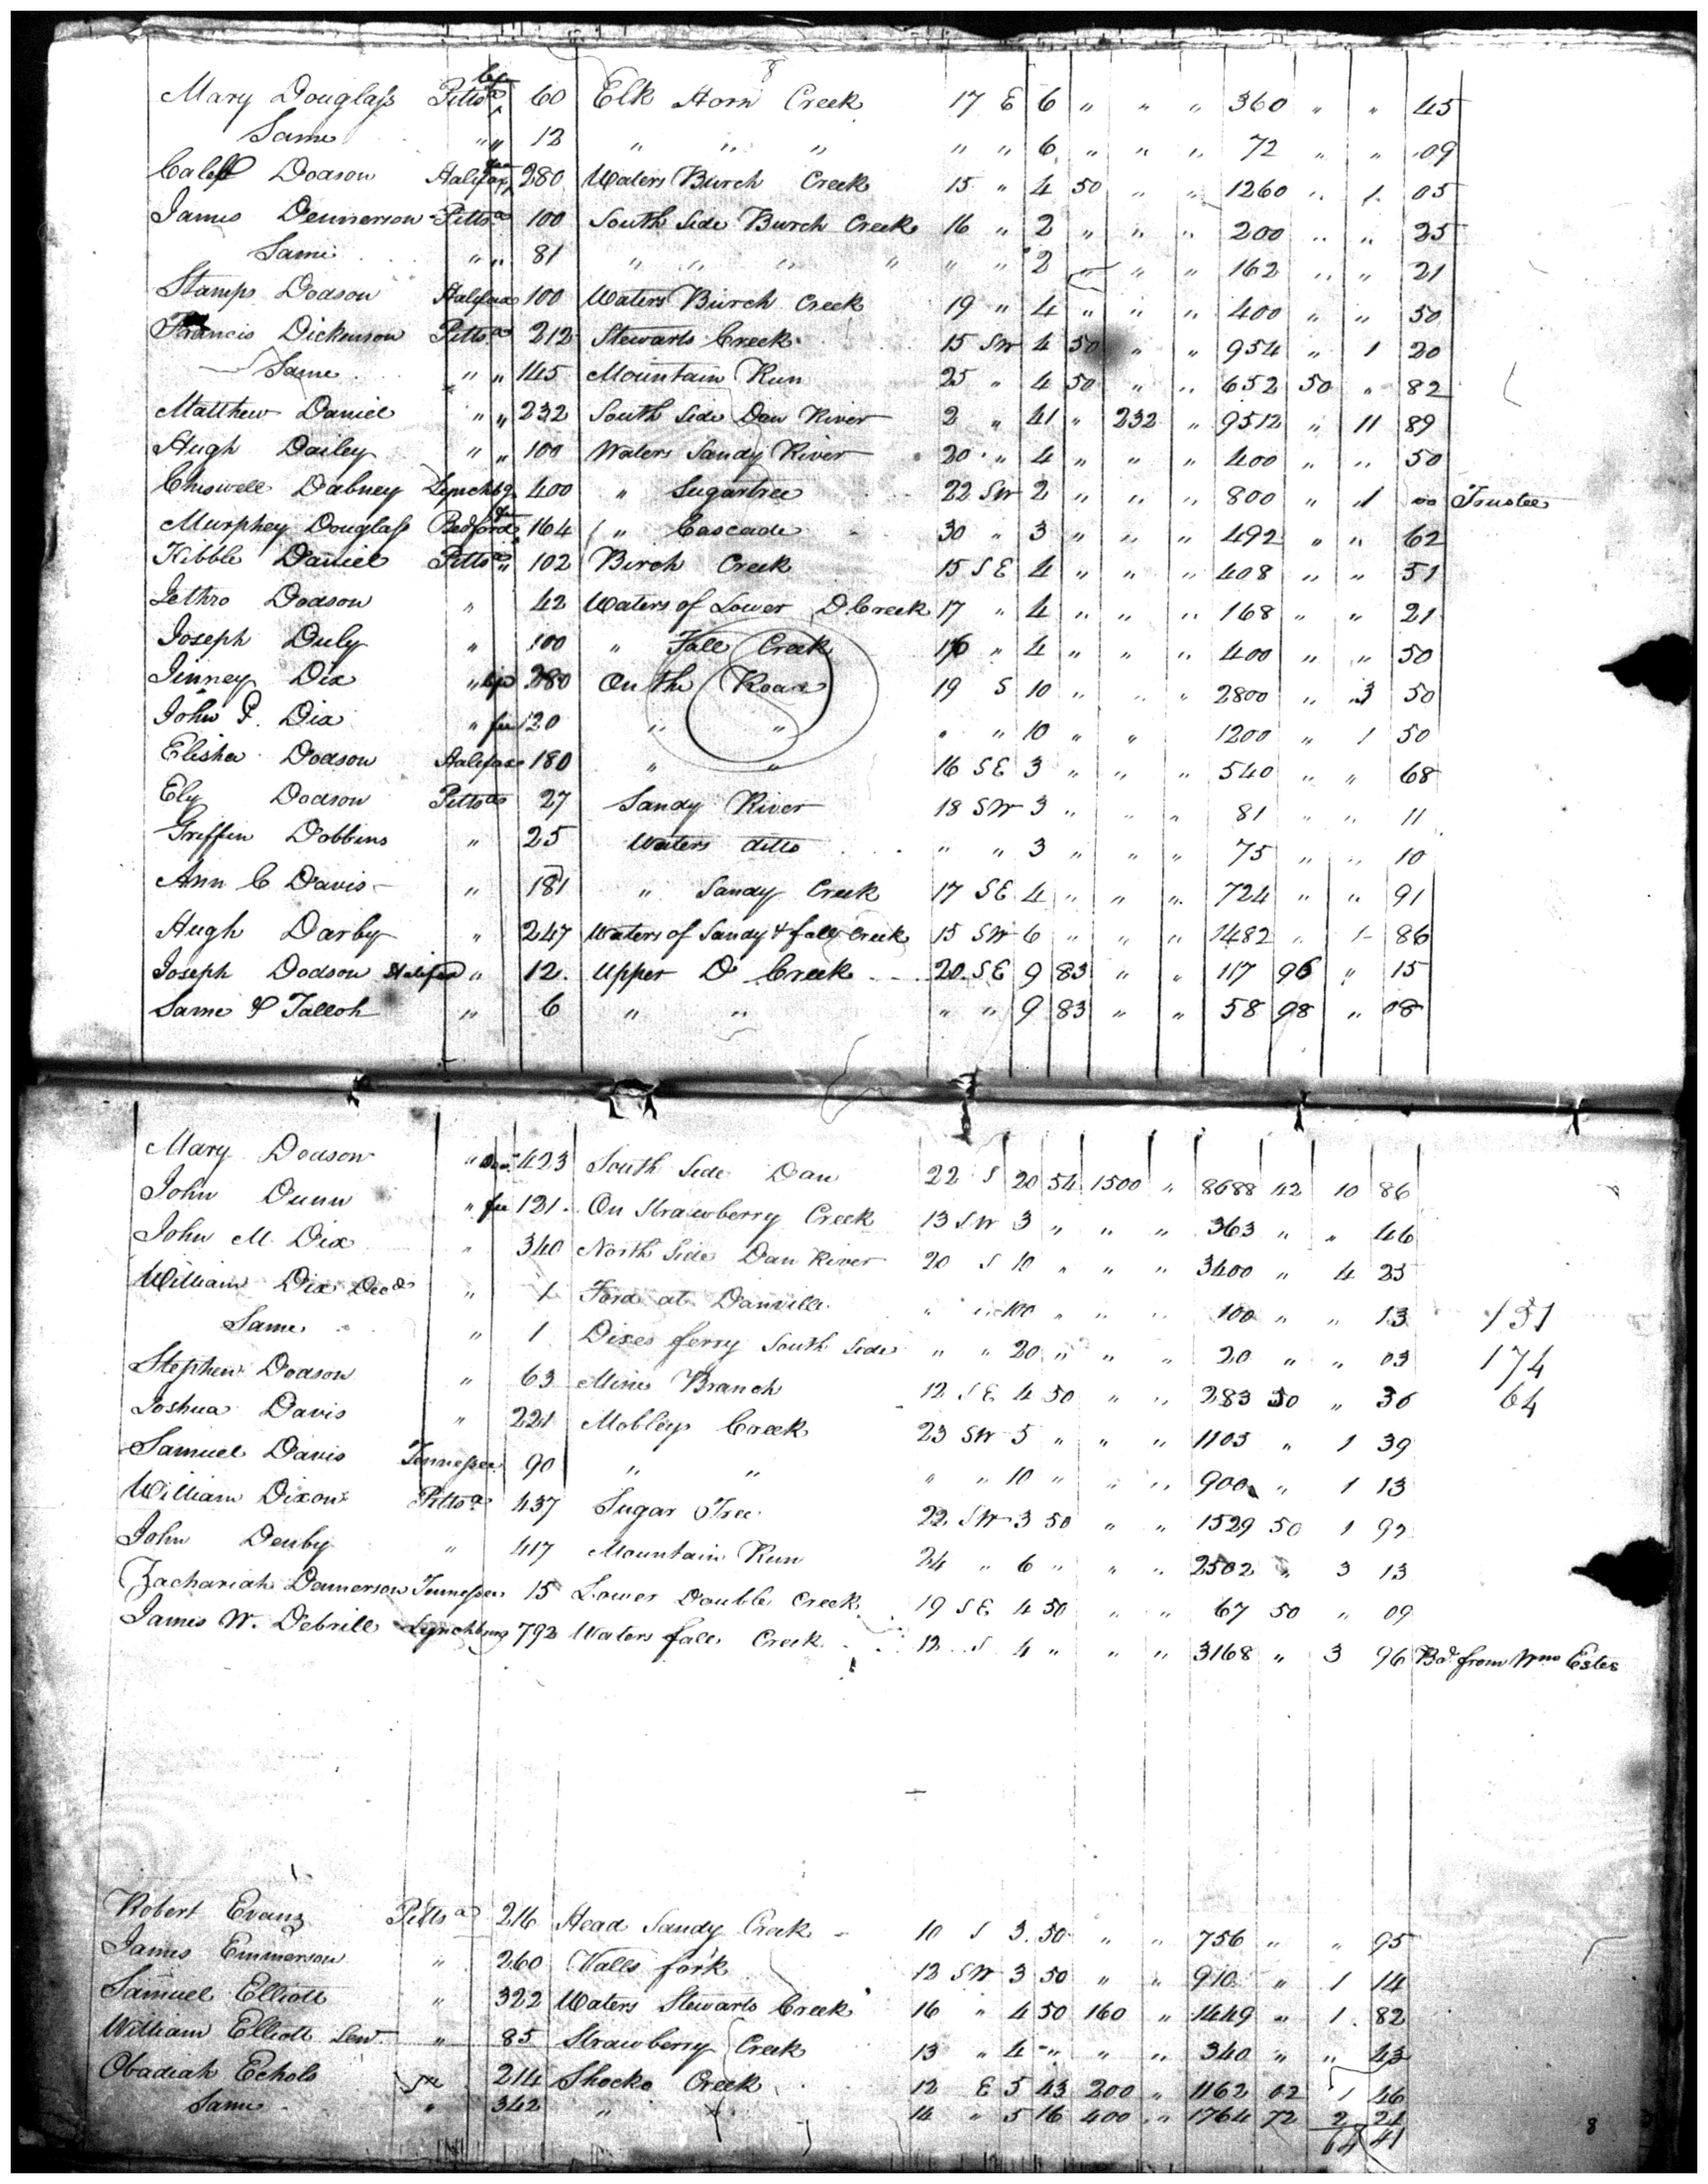 8
Mary Douglass Pittsa 60 Elk Horn Creek 17 E 6 " " " 360 " " 45
Same " " 12 " " " " " 6 " " " 72 " " 09
Caleb Dodson Halifax 280 Waters Burch Creek 15 " 4 50 " " 1260 " 1 05
James Dennerson Pittsa 100 South Side Burch Creek 16 " 2 " " " 200 " " 25
Same " " 81 " " " " " " 2 " " " 162 " " 21
Stamps Dodson Halifax 100 Waters Burch Creek 19 " 4 " " " 400 " " 50
Francis Dickenson Pittsa 212 Stewarts Creek 15 SW 4 50 " " 954 " 1 20
Same " " 145 Mountain Run 25 " 4 50 " " 652 50 " 82
Matthew Daniel " " 232 South Side Dan River 2 " 41 " 232 " 9512 " 11 89
Hugh Dailey " " 100 Waters Sandy River 20 " 4 " " " 400 " " 50
Chiswell Dabney Lynchbg 400 " Sugartree 22 SW 2 " " " 800 " 1 00 Trustee
Murphey Douglass Bedford 164 " Cascade 30 " 3 " " " 492 " " 62
Kibble Daniel Pittsa " 102 Birch Creek 15 SE 4 " " " 408 " " 51
Jethro Dodson " 42 Waters of Lower D. Creek 17 " 4 " " " 168 " " 21
Joseph Duly " 100 " Fall Creek 16 " 4 " " " 400 " " 50
Jinney Dix " 280 On the Road 19 S 10 " " " 2800 " 3 50
John P. Dix " fee 120 " " " " 10 " " 1200 " 1 50
Elisha Dodson Halifax 180 " " 16 SE 3 " " " 540 " " 68
Ely Dodson Pittsa 27 Sandy River 18 SW 3 " " " 81 " " 11
Griffin Dobbins " 25 Waters ditto " " 3 " " " 75 " " 10
Ann C Davis " 181 " Sandy Creek 17 SE 4 " " " 724 " " 91
Hugh Darby " 247 Waters of Sandy & fall Creek 15 SW 6 " " " 1482 " 1 86
Joseph Dodson Halifax " 12 Upper D Creek 20 SE 9 83 " " 117 96 " 15
Same & Talloh " 6 " " " " 9 83 " " 58 98 " 08
Mary Dodson " 423 South Side Dan 22 S 20 54 1500 " 8688 42 10 86
John Dunn " fee 121 On Strawberry Creek 13 SW 3 " " " 363 " " 46
John M. Dix " 340 North Side Dan River 20 S 10 " " " 3400 " 4 25
William Dix Decd " 1 Ford at Danville " " 100 " " " 100 " " 13 131
Same " 1 Dixes ferry South Side " " 20 " " " 20 " " 03 174
Stephen Dodson " 63 Mine Branch 12 SE 4 50 " " 283 50 " 36 64
Joshua Davis " 221 Mobley Creek 23 SW 5 " " " 1105 " 1 39
Samuel Davis Tennessee 90 " " " " 10 " " " 900 " 1 13
William Dixon Pittsa 437 Sugar Tree 22 SW 3 50 " " 1529 50 1 92
John Denby " 417 Mountain Run 24 " 6 " " " 2502 " 3 13
Zachariah Damerson Tennessee 15 Lower Double Creek 19 SE 4 50 " " 67 50 " 09
James W. Debrill Lynchburg 792 Waters fall Creek 12 S 4 " " " 3168 " 3 96 Bd from Wm Estes
Robert Evans Pittsa 216 Head Sandy Creek 10 S 3 50 " " 756 " " 95
James Emmerson " 260 Valls fork 12 SW 3 50 " " 910 " 1 14
Samuel Elliott " 322 Waters Stewarts Creek 16 " 4 50 160 " 1449 " 1 82
William Elliott Senr " 85 Strawberry Creek 13 " 4 " " " 340 " " 43
Obadiah Echols 214 Shocko Creek 12 E 5 43 200 " 1162 02 1 46
Same " 342 " " 14 " 5 16 400 " 1764 72 2 21
64 41
8